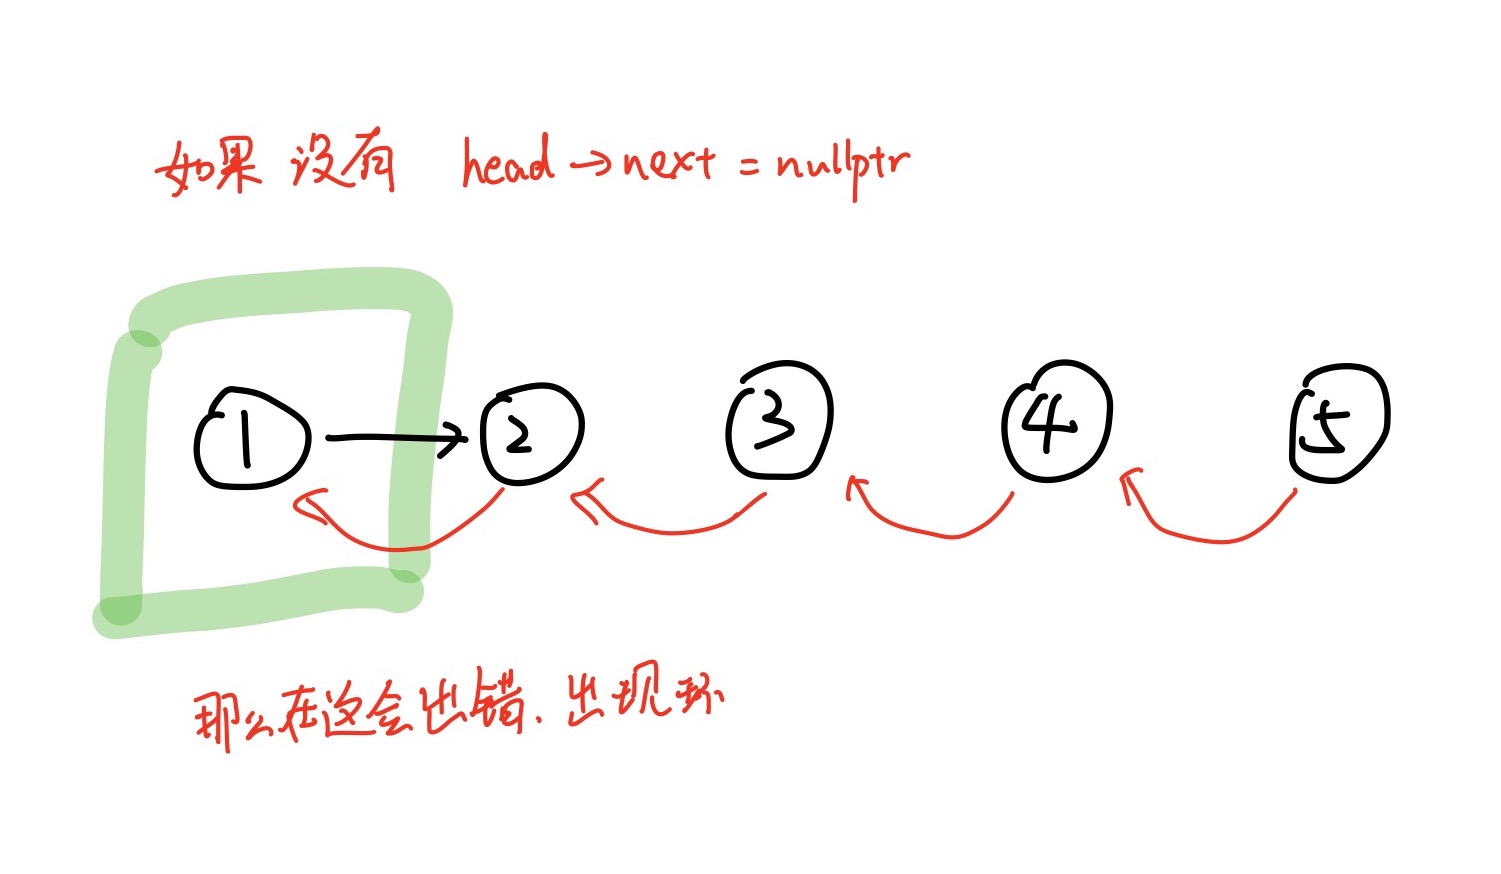 如果 没有 head→next = nullptr
1 → 2 3 4 5
那么在这会出错. 出现环